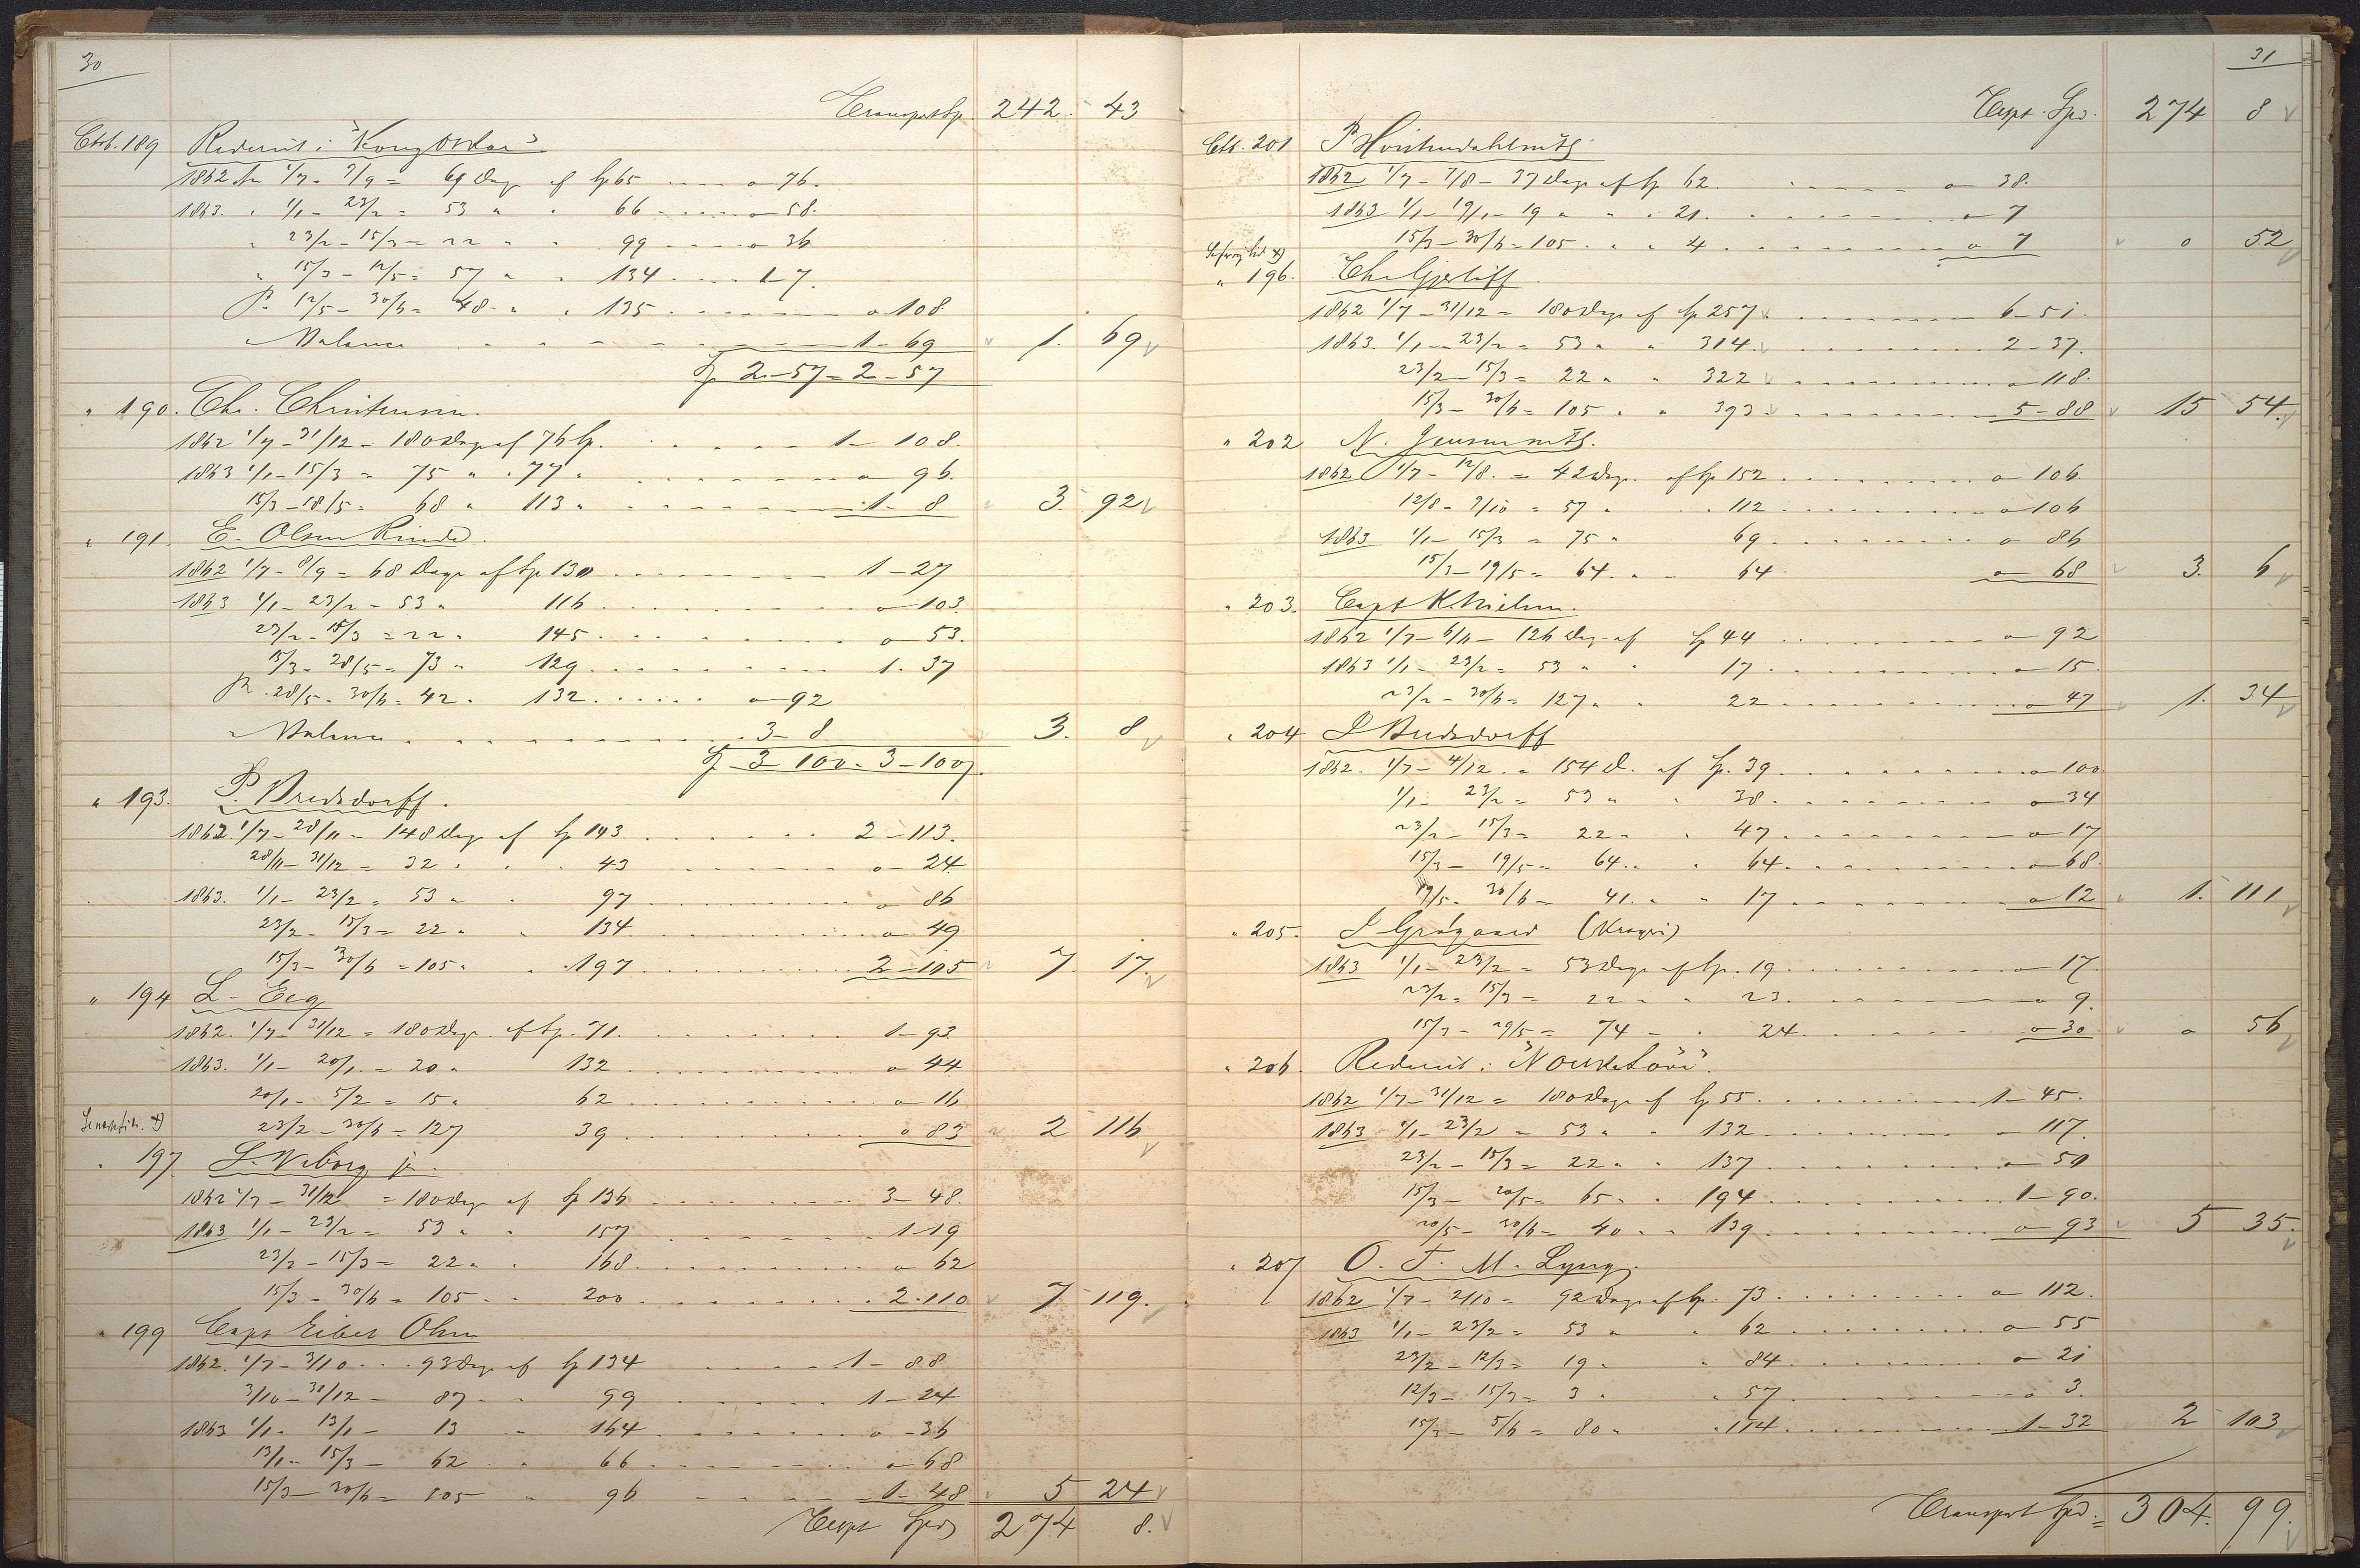 30
Transport Sp. 242. 43
Ctb. 189 Rederiet i "Kong Oskar"
1862 1/7 - 9/9 = 69 Dage af Sp 65 - - - - o - 76.
1863. " 1/1 - 23/2 = 53 " " 66 - - - - o - 58.
" 23/2 - 15/3 = 22 " " 99 - - - - o 36
" 15/3 - 12/5 = 57 " " 134 - - - 1 - 7.
12/5 - 30/6 = 48 - " " 135 - - - - - - - o 108
Balance - - - - - - - - 1 - 69 1. 69
Sp 2 - 57 = 2 - 57
" 190. Chr. Christensen.
1862 1/7 - 31/12 - 180 Dage af 76 Sp. - - - - 1 - 108.
1863 1/1 - 15/3 = 75 " " 77 " - - - - - - o 96.
15/3 - 18/5 = 68 " 113 " - - - - - - 1 - 8 3. 92
" 191. E. Olsen Rinde.
1862 1/7 - 8/9 = 68 Dage af Sp 130 - - - - - - 1 - 27
1863 1/1 - 23/2 - 53 " 116 - - - - - - o - 103.
23/2 - 15/3 = 22 " 145 - - - - - - o - 53.
15/3 - 28/5 = 73 " 129 - - - - - - 1. 37
28/5 - 30/6 = 42 " 132 - - - - - o - 92
Balance - - - - - - - - 3 - 8 3. 8
Sp 3 - 100 = 3 - 100.
" 193. P. Bredsdorff.
1862. 1/7 - 28/11 = 148 Dage af Sp 143 - - - - - 2 - 113.
28/11 - 31/12 = 32 " " 43 - - - - - o - 24
1863. 1/1 - 23/2 = 53 " " 97 - - - - - o 86
23/2 - 15/3 = 22 " " 134 - - - - - o 49
15/3 - 30/6 = 105 " " 197 - - - - - 2 - 105 7. 17.
" 194 L. Eeg
1862. 1/7 - 31/12 = 180 Dage af Sp. 71. - - - - - 1 - 93
1863. 1/1 - 20/1 = 20 " 132 - - - - - o 44
20/1 - 5/2 = 15 " 62 - - - - - o 16
23/2 - 30/6 = 127 39 - - - - - o 83 2 116
" 197. L. Viborg jr.
1862 1/7 - 31/12 = 180 Dage af Sp 136 - - - - - 3 - 48.
1863 1/1 - 23/2 = 53 " " 157 - - - - - 1 - 19
23/2 - 15/3 = 22 " " 168 - - - - - o 62
15/3 - 30/6 = 105 " " 200 - - - - - 2 - 110 7 119.
" 199 Capt Olsen
1862. 1/7 - 3/10 - - 93 Dage af Sp 134 - - - - 1 - 88
3/10 - 31/12 - 87 - - 99 - - - - 1 - 24
1863 1/1 - 13/1 - 13 " 164 - - - - o - 36
13/1 - 15/3 - 62 " " 66 - - - - o - 68
15/3 - 30/6 = 105 " 96 - - - - 1 - 48 5 24
Trspt Spd 274 8.
31
Trspt. Spd. 274 8
Ctb. 201
1862 1/7 - 7/8 - 37 Dage af Sp 62. - - - - o - 38.
1863 1/1 - 19/1 - 19 " " " 21. - - - - o - 7
15/3 - 30/6 = 105 " " " 4 - - - - o 7 o 52
" 196. Chr Gjerløff
1862 1/7 - 31/12 = 180 Dage af Sp 257 - - - - 6 - 51.
1863. 1/1 - 23/2 = 53 " " 314 - - - - 2 - 37.
23/2 - 15/3 = 22 " " 322 - - - - o 118.
15/3 - 30/6 = 105 " " 393 - - - - 5 - 88 15 54.
" 202 N.
1862 1/7 - 12/8. = 42 Dage af Sp 152 - - - - o 106
12/8 - 9/10 = 57 " " 112 - - - - o 106
1863 1/1 - 15/3 = 75 " 69 - - - - o 86
15/3 - 19/5 = 64 " - 64 o 68 3. 6
" 203. Capt K. Nielsen.
1862 1/7 - 6/11 - 126 Dage af Sp 44 - - - - o - 92
1863 1/1 - 23/2 = 53 " " 17 - - - - o 15.
23/2 - 30/6 = 127 " " 22 - - - - o 47 1. 34
" 204 L Bredsdorff
1862. 1/7 - 4/12 = 154 D. af Sp. 39 - - - - o 100.
1/1 - 23/2 = 53 " " 38 - - - - o 34
23/2 - 15/3 = 22 " " 47 - - - - o 17
15/3 - 19/5 = 64 " " 64 - - - - o 68.
19/5 - 30/6 = 41 " " 17 - - - - o 12 1. 111
" 205. (Kragerø)
1863 1/1 - 23/2 = 53 Dage af Sp. 19 - - - - o - 17.
23/2 - 15/3 = 22 " " 23. - - - - o 9.
15/3 - 29/5 = 74 - " 24 - - - - o 30 o 56
" 206. Rederiet i
1862 1/7 - 31/12 = 180 Dage af Sp 55 - - - - 1 - 45.
1863 1/1 - 23/2 = 53 " " 132 - - - - - 117.
23/2 - 15/3 = 22 " " 137 - - - - o - 50
15/3 - 20/5 = 65 " " 194 - - - - 1 - 90.
20/5 - 30/6 = 40 " " 139 - - - - o 93 5 35.
" 207 O. T. M. Lyng.
1862 1/7 - 2/10 = 92 Dage af Sp. 73 - - - - o - 112.
1863 1/1 - 23/2 = 53 " " 62 - - - - o - 55
23/2 - 12/3 = 19 " " 84 - - - - o - 21
12/3 - 15/3 = 3 " " 57 - - - - o 3.
15/3 - 5/6 = 80 " " 114 - - - - 1 - 32 2 103
Transport Spd. = 304. 99.